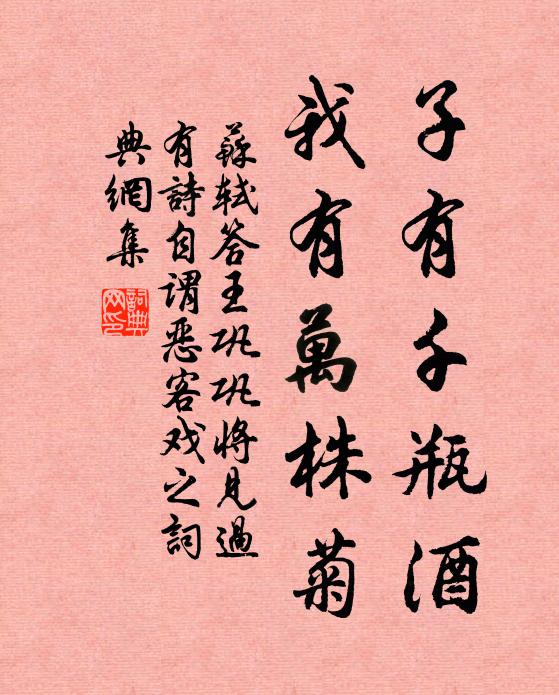 子有千瓶酒
我有萬株菊
蘇軾答王巩巩將見過
有詩自谓恶客戏之詞
典網集
詞典網印